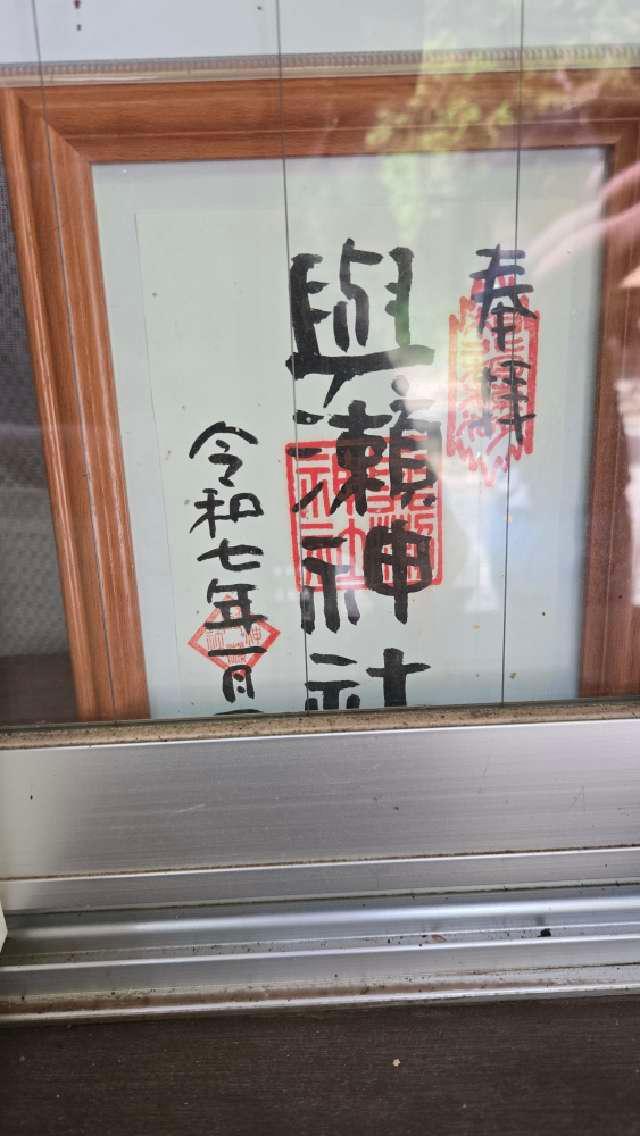 奉拝
與瀬神社
令和七年一月